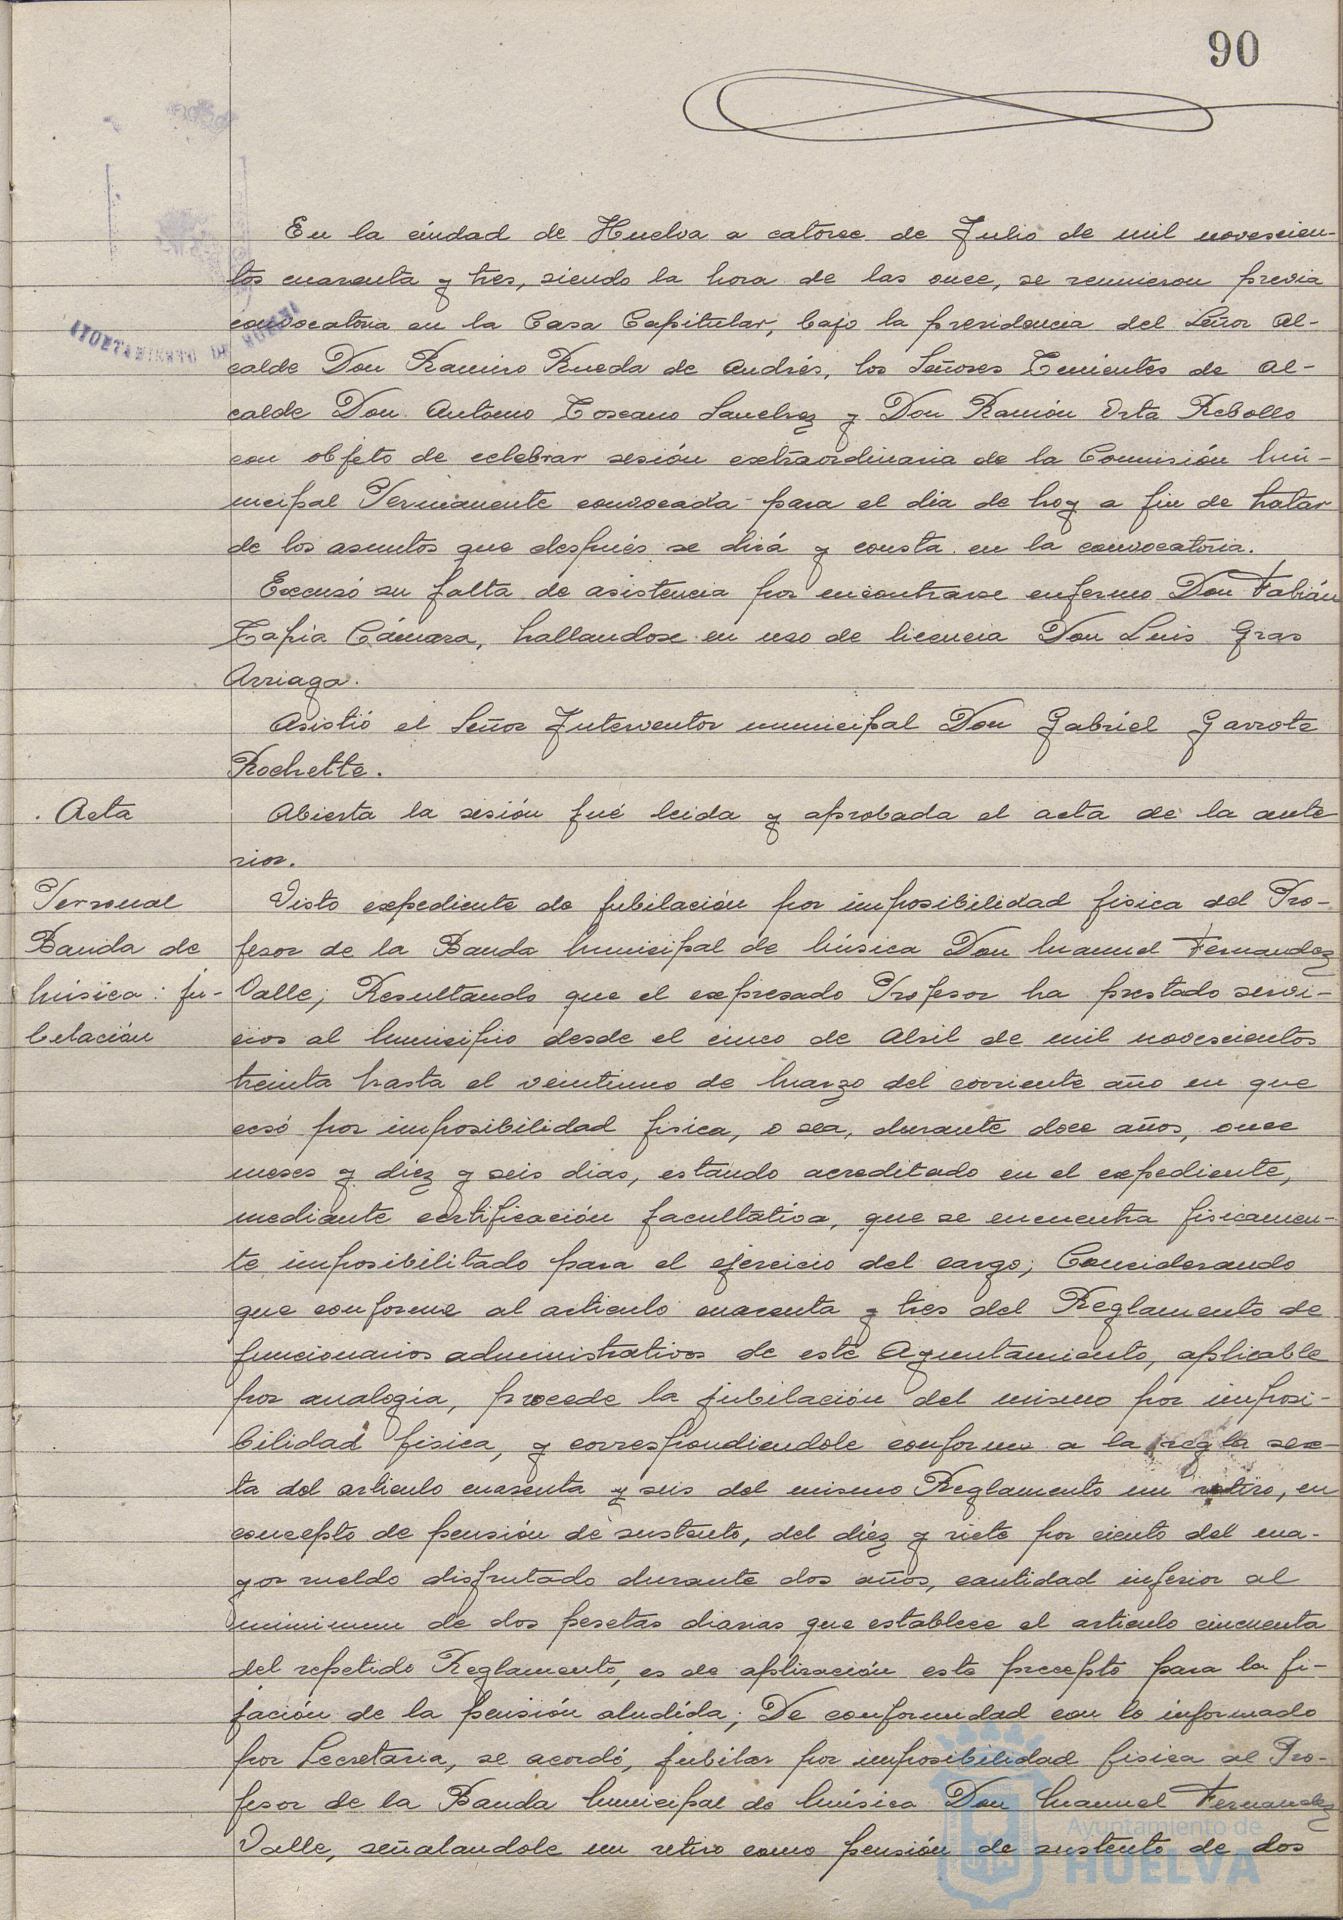 90
AYUNTAMIENTO DE HUELVA
En la ciudad de Huelva a catorce de Julio de mil novescien-
tos cuarenta y tres, siendo la hora de las once, se reunieron previa
convocatoria en la Casa Capitular, bajo la presidencia del Señor Al-
calde Don Ramiro Rueda de Andrés, los Señores Tenientes de Al-
calde Don Antonio Toscano Sanchez y Don Ramón Orta Rebollo
con objeto de celebrar sesión extraordinaria de la Comisión Mu-
nicipal Permanente convocada para el dia de hoy a fin de tratar
de los asuntos que después se dirá y consta en la convocatoria.
Excusó su falta de asistencia por encontrarse enfermo Don Fabián
Tapia Cámara, hallandose en uso de licencia Don Luis Gras
Arriaga.
Asistió el Señor Interventor municipal Don Gabriel Garrote
Rochette.
Acta
Abierta la sesión fué leida y aprobada el acta de la ante
rior.
Personal
Banda de
Música: ju-
bilación
Visto expediente de jubilación por imposibilidad fisica del Pro-
fesor de la Banda Municipal de Música Don Manuel Fernandez
Valle; Resultando que el expresado Profesor ha prestado servi-
cios al Municipio desde el cinco de Abril de mil novescientos
treinta hasta el veintiuno de Marzo del corriente año en que
cesó por imposibilidad fisica, o sea, durante doce años, once
meses y diez y seis dias, estando acreditado en el expediente,
mediante certificación facultativa, que se encuentra fisicamen-
te imposibilitado para el ejercicio del cargo; Considerando
que conforme al articulo cuarenta y tres del Reglamento de
funcionarios administrativos de este Ayuntamiento, aplicable
por analogia, procede la jubilación del mismo por imposi-
bilidad fisica, y correspondiendole conforme a la regla sex-
ta del articulo cuarenta y seis del mismo Reglamento un retiro, en
concepto de pensión de sustento, del diez y siete por ciento del ma-
yor sueldo disfrutado durante dos años, cantidad inferior al
minimum de dos pesetas diarias que establece el articulo cincuenta
del repetido Reglamento, es de aplicación este precepto para la fi-
jación de la pensión aludida; De conformidad con lo informado
por Secretaria, se acordó, jubilar por imposibilidad fisica al Pro-
fesor de la Banda Municipal de Música Don Manuel Fernandez
Valle, señalandole un retiro como pensión de sustento de dos
Ayuntamiento de
HUELVA